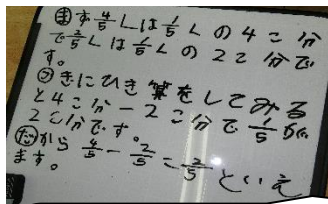 まず4/5Lは1/5Lの4こ分
で2/5Lは1/5Lの2こ分で
す。
つぎにひき算をしてみる
と4こ分-2こ分で1/5が
2こ分です。
だから4/5-2/5=2/5といえ
ます。